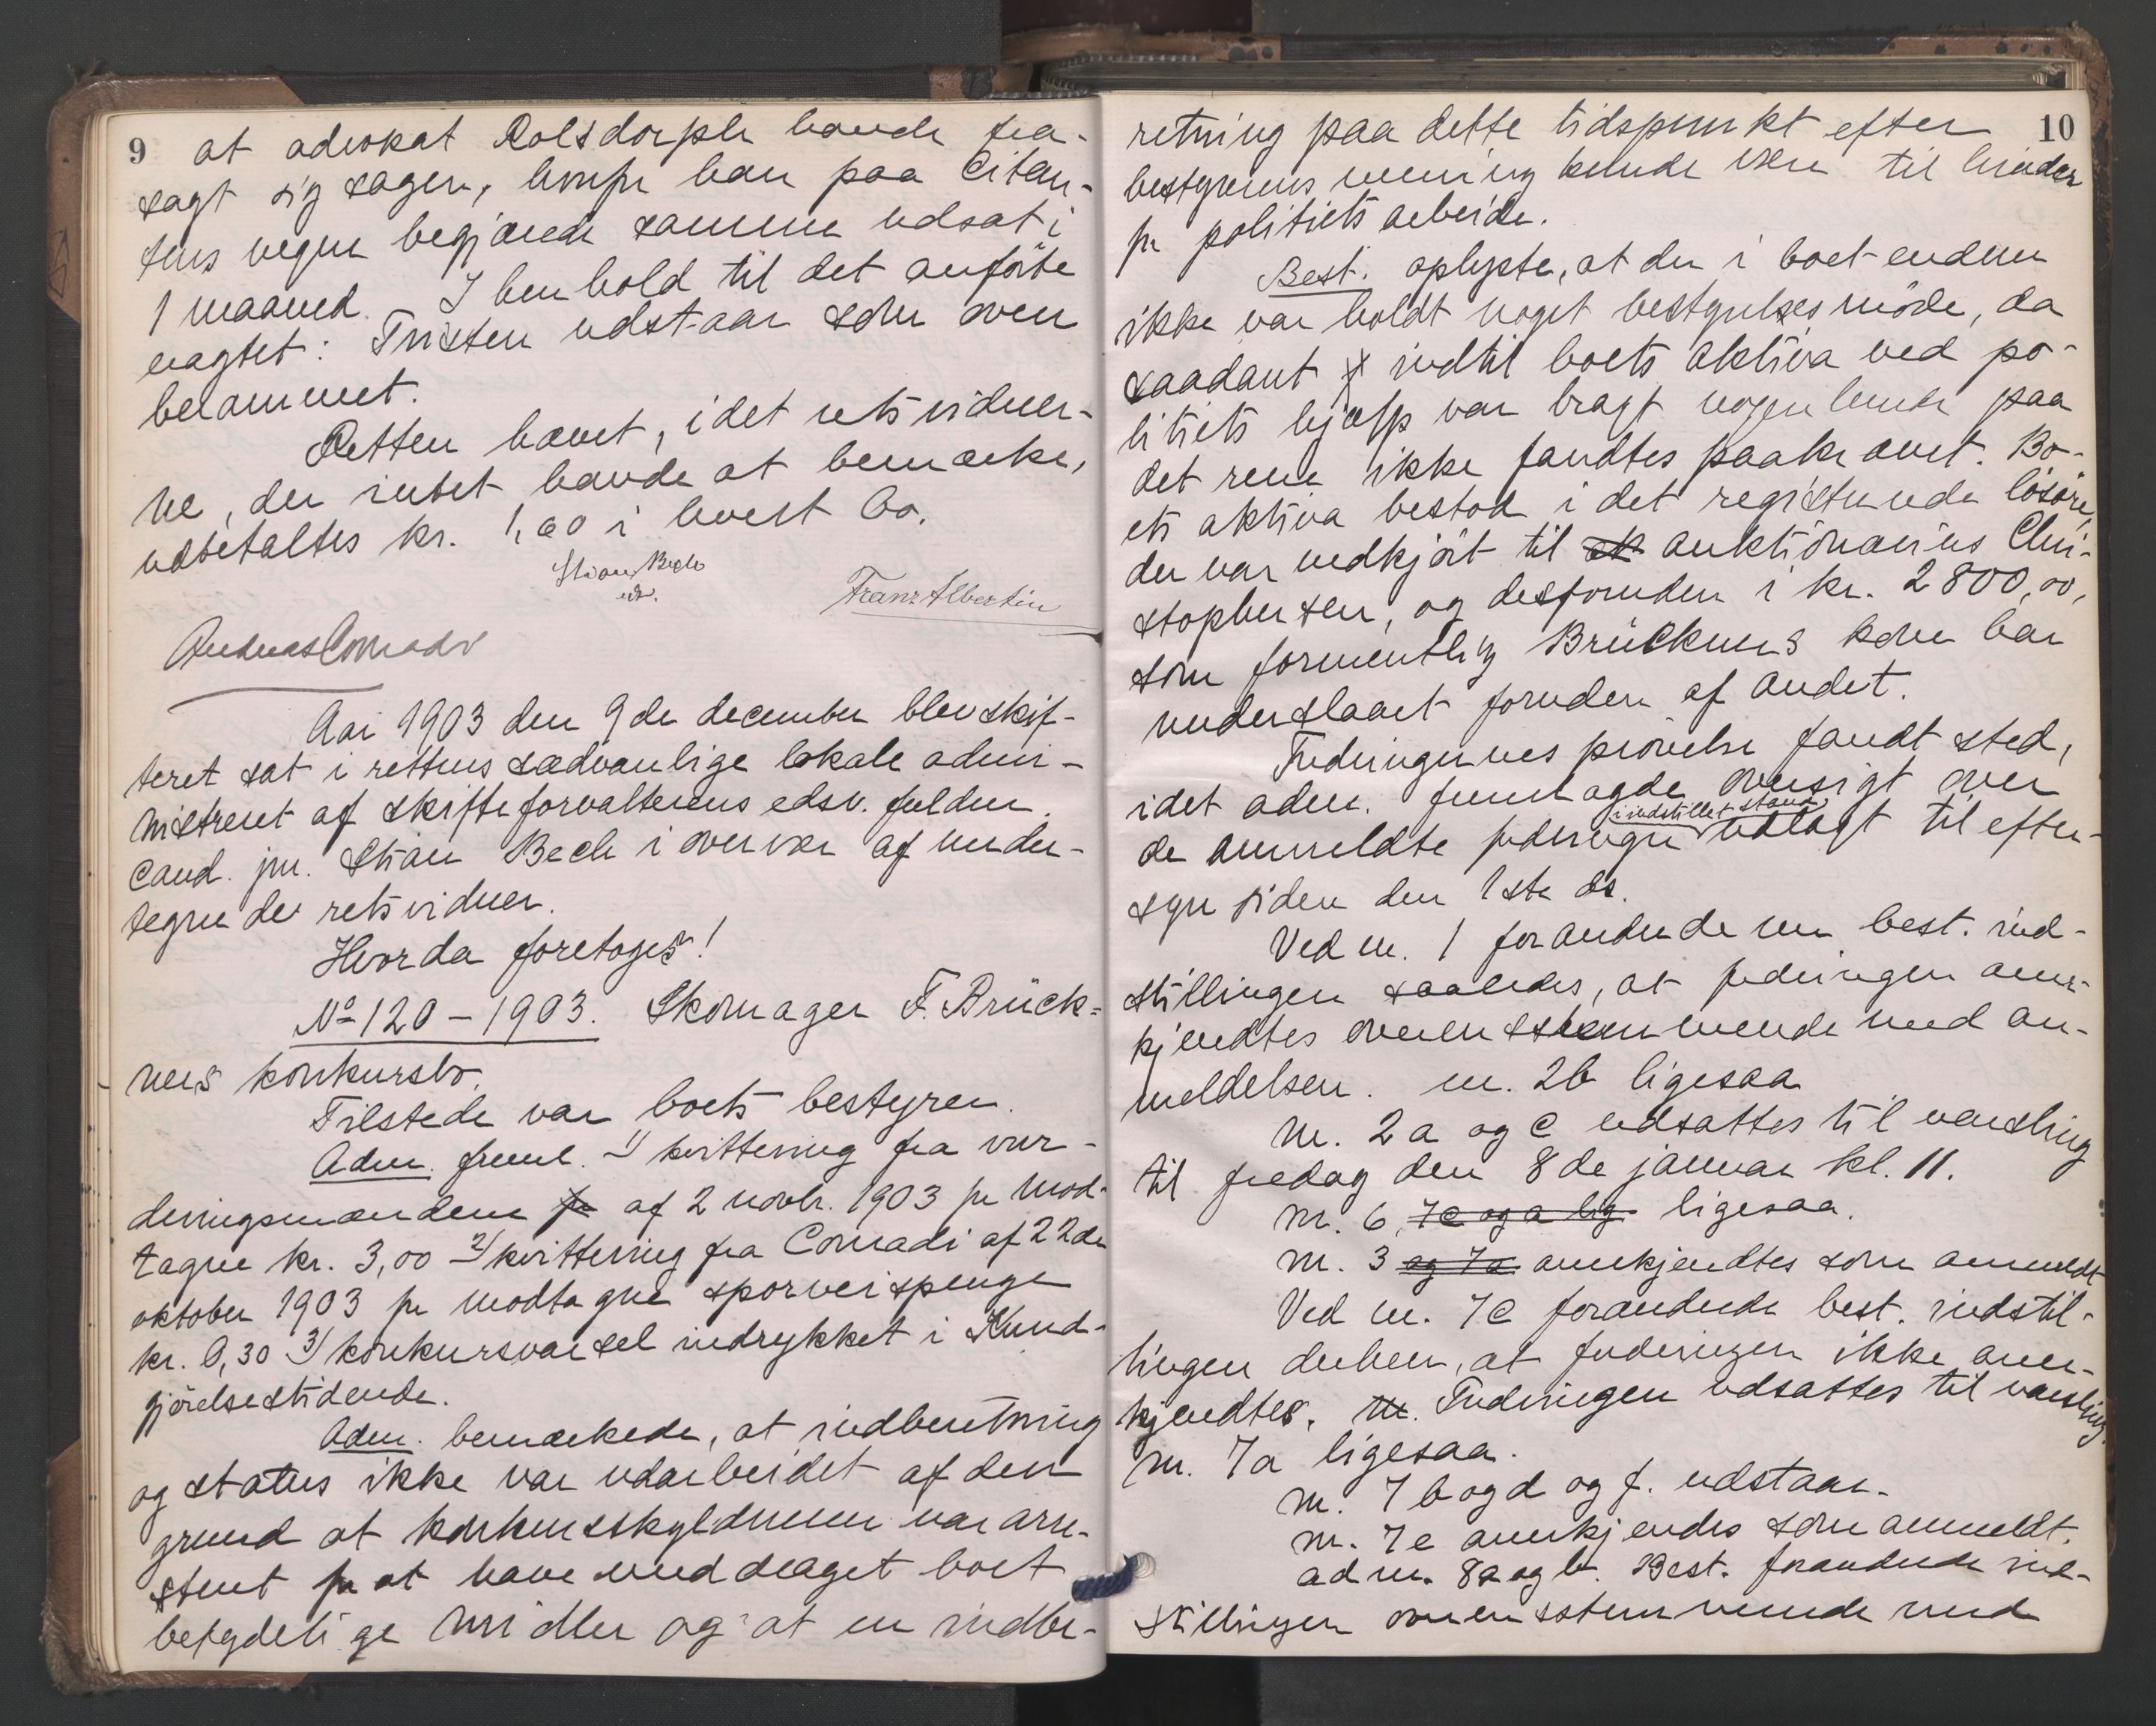 9
at advokat Rolsdorph havde fra-
sagt sig sagen, hvorfor han paa citan-
tens vegne begjærede samme udsat i
1 maaned. I henhold til det anførte
eragtet: Tvisten udstaar som oven
berammet.
Retten hævet, idet retsvidner-
ne, der intet havde at bemærke,
udbetaltes kr. 1,60 i hvert Co.
Stian Bech
eds.
Franz Albertin
Andreas Conradi
Aar 1903 den 9de december blev skif-
teret sat i rettens sædvanlige lokale admi-
nistreret af skifteforvalterens edsv. fuldm.
cand. jur. Stian Bech i overvær af under-
tegnede retsvidner.
Hvorda foretoges!
No 120 - 1903. Skomager F. Brück-
ners konkursbo.
Tilstede var boets bestyrer.
Adm. freml. 1) kvittering fra vur-
deringsmændene for af 2 novbr. 1903 for mod-
tagne kr. 3,00 2) kvittering fra Conradi af 22de
oktober 1903 for modtagne sporveispenge
kr. 0,30 3) konkursvarsel indrykket i Kund-
gjørelsestidende.
Adm. bemærkede, at indberetning
og status ikke var udarbeidet af den
grund at konkursskyldneren var arre-
steret for at have unddraget boet
betydelige midler og at en indbe-
10
retning paa dette tidspunkt efter
bestyrerens mening kunde være til hinder
for politiets arbeide.
Best. oplyste, at der i boet endnu
ikke var holdt noget bestyrelsesmøde, da
saadant indtil boets aktiva ved po-
litiets hjælp var bragt nogenlunde paa
det rene ikke fandtes paakrævet. Bo-
ets aktiva bestod i det registrerede løsøre,
der var nedkjørt til auktionarius Chri-
stophersen, og desforuden i kr. 2800,00,
som formentlig Brückners kone har
underslaaet foruden af andet.
Fordringernes prøvelse fandt sted,
idet adm. fremlagde oversigt over
de anmeldte fordringer i indstillet stand, udlagt til efter-
syn siden den 1ste ds.
Ved nr. 1 forandrede nu best. ind-
stillingen saaledes, at fordringen aner-
kjendtes overensstemmende med an-
meldelsen. nr. 2b ligesaa
Nr. 2a og c udsattes til varsling
til fredag den 8de januar kl. 11.
Nr. 6, 7c og a lig. ligesaa.
Nr. 3 og 7a anerkjendtes som anmeldt
Ved nr. 7c forandrede best. indstil-
lingen derhen, at fordringen ikke aner-
kjendtes. Nr. Fordringen udsattes til varsling.
Nr. 7a ligesaa.
Nr. 7 b og d og f. udstaar.
Nr. 7e anerkjendes som anmeldt.
ad nr. 8a og b. Best. forandrede ind-
stillingen overensstemmende med